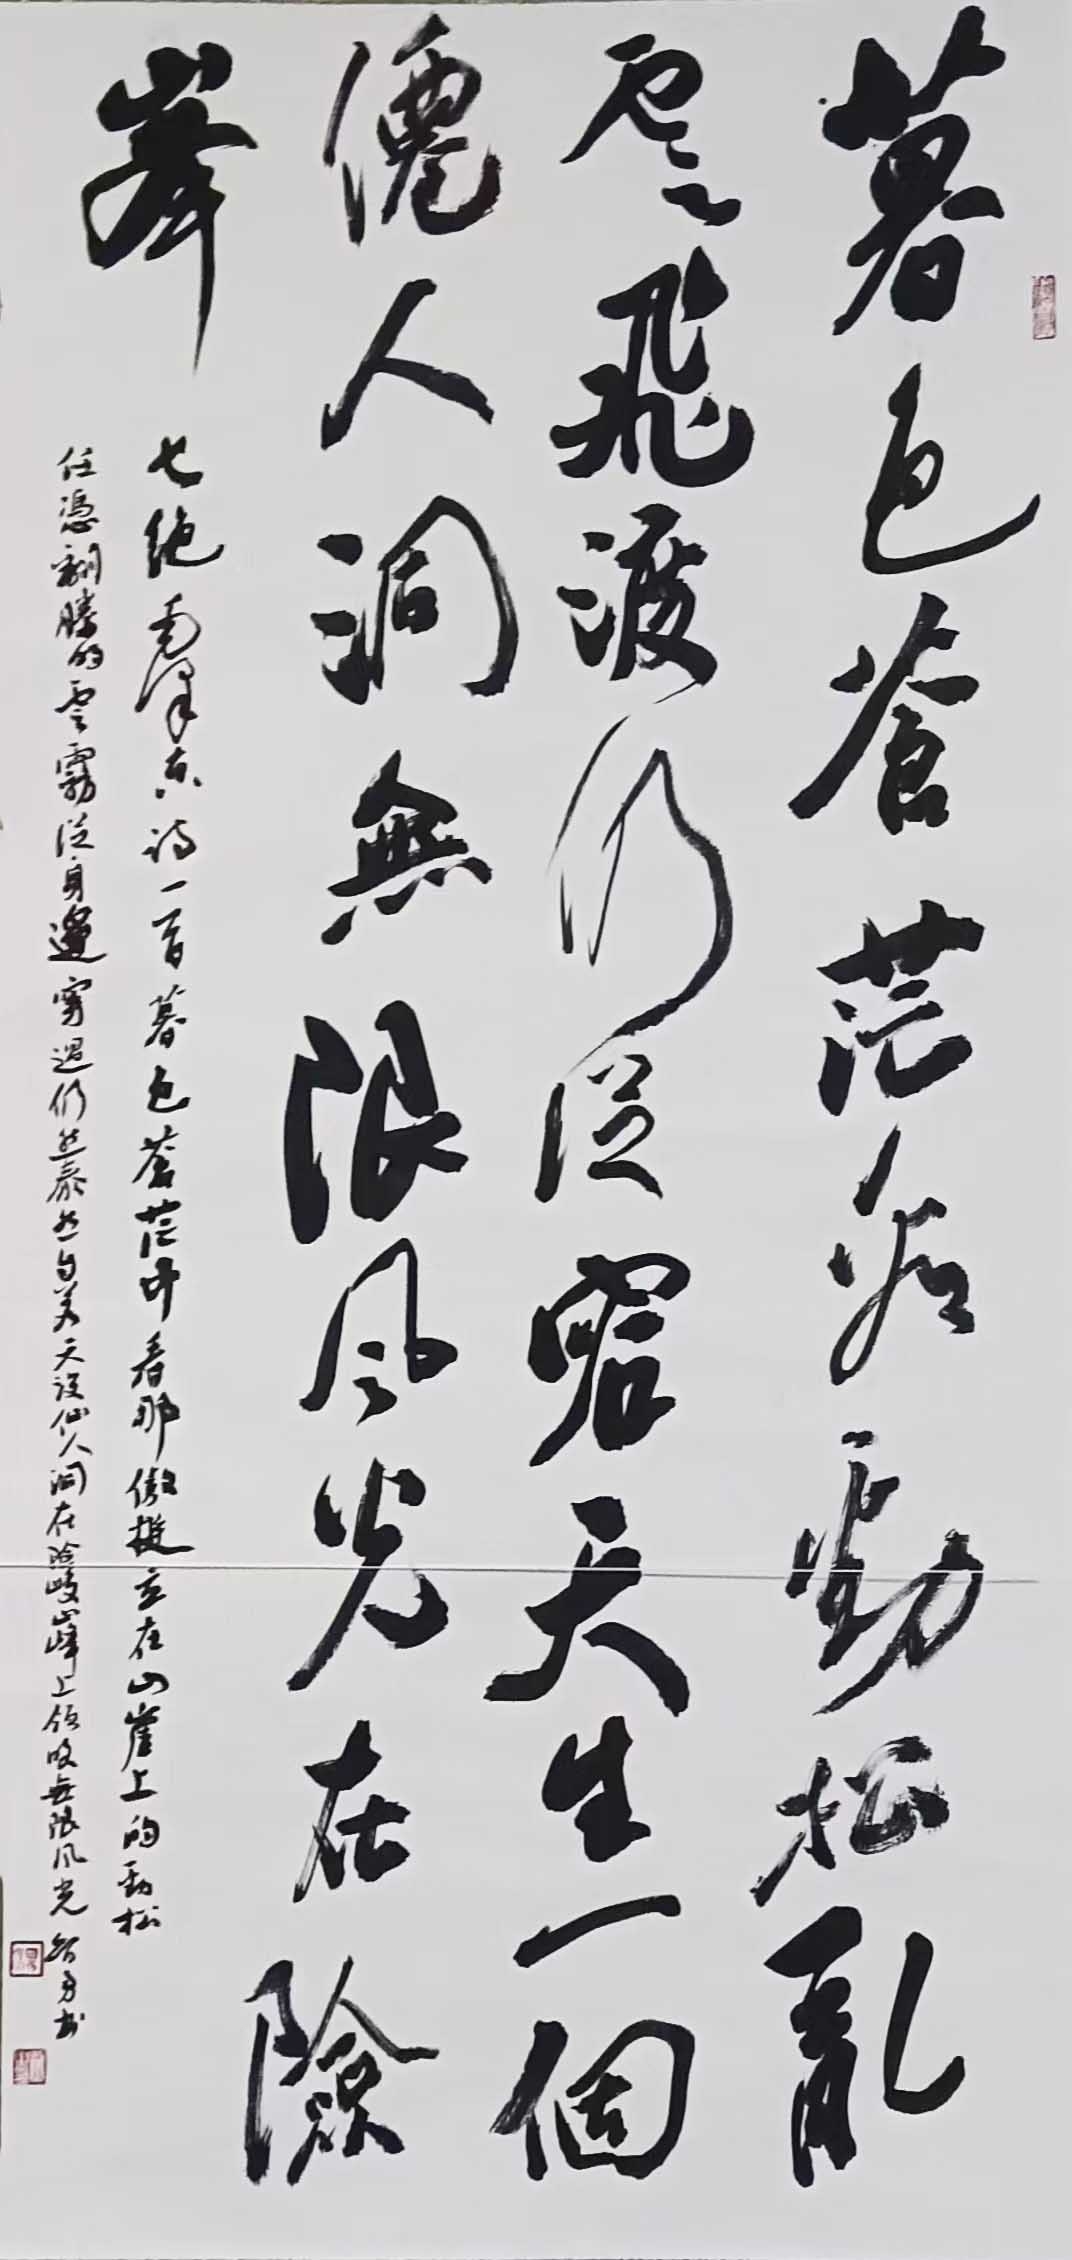 暮色蒼茫看勁松亂
雲飛渡仍從容天生一個
僊人洞無限風光在險
峯
七絕毛澤东诗一首暮色蒼茫中看那傲挺立在山崖上的勁松
任憑翻騰的雲霧從身邊穿過仍然泰然自若天设仙人洞在险峻峰上领略無限风光